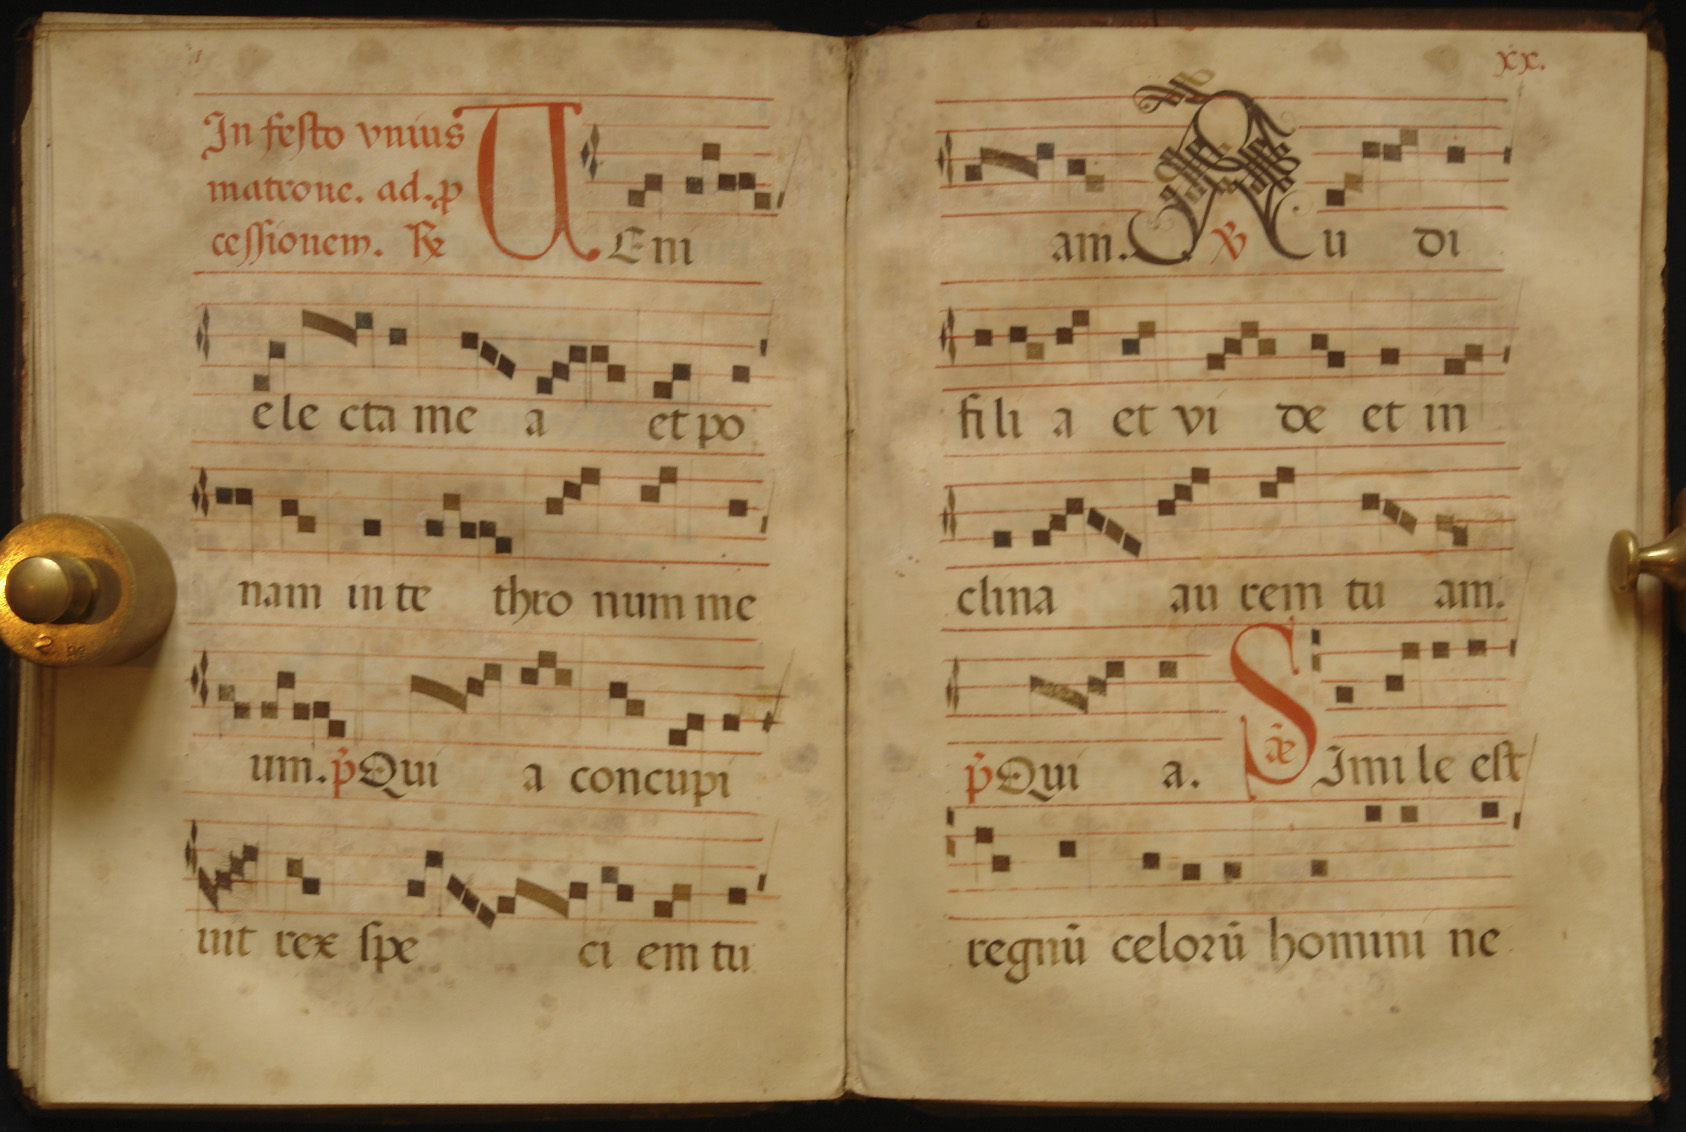 In festo vnius
matrone. ad. p
cessionem. R
VEni
ele cta me a et po
nam in te thro num me
um. p̃ Qui a concupi
uit rex spe ci em tu
xx.
am. ℣ Au di
fi li a et vi de et in
clina au rem tu am.
p̃ Qui a. añ Simi le est
regnũ celorũ homini ne